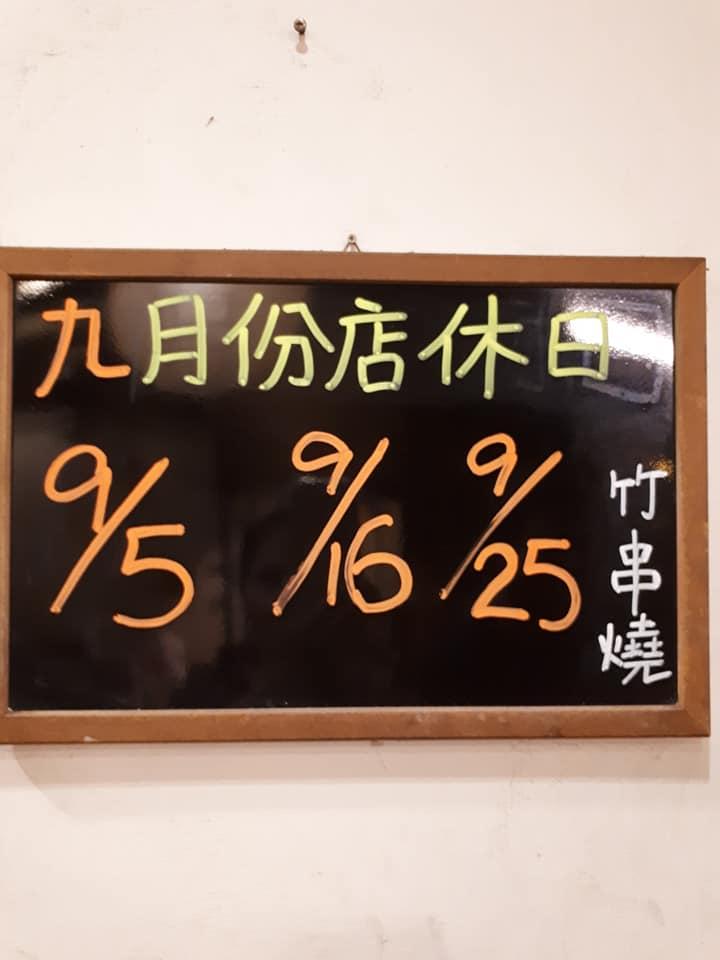 九月份店休日
9/5 9/16 9/25
竹串燒